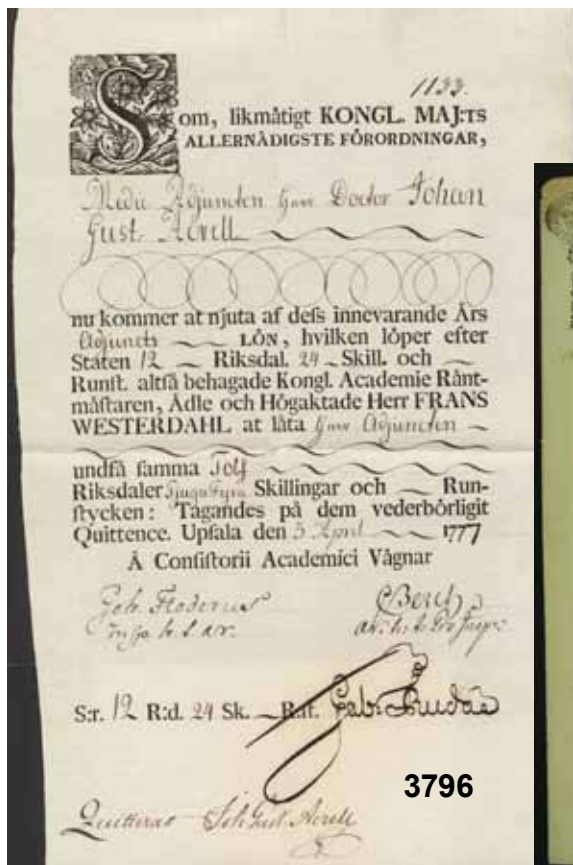 1133.
Som, likmåtigt KONGL. MAJ:TS
ALLERNÅDIGSTE FÖRORDNINGAR,
Medic Adjuncten Herr Doctor Johan
Gust. Acrell
nu kommer at njuta af deſs innevarande Års
Adjuncts LÖN, hvilken löper efter
Staten 12 Riksdal. 24 Skill. och
Runſt. altſå behagade Kongl. Academie Rånt-
måſtaren, Ådle och Högaktade Herr FRANS
WESTERDAHL at låta Herr Adjuncten
undfå ſamma Tolf
Riksdaler Tjugufyra Skillingar och Run-
ſtycken: Tagandes på dem vederbörligit
Quittence. Upſala den 3 April 1777
Å Conſiſtorii Academici Vågnar
Joh. Floderus
CBerch
S:r. 12 R:d. 24 Sk. R:ſt.
3796
Quitteras Joh Gust Acrell